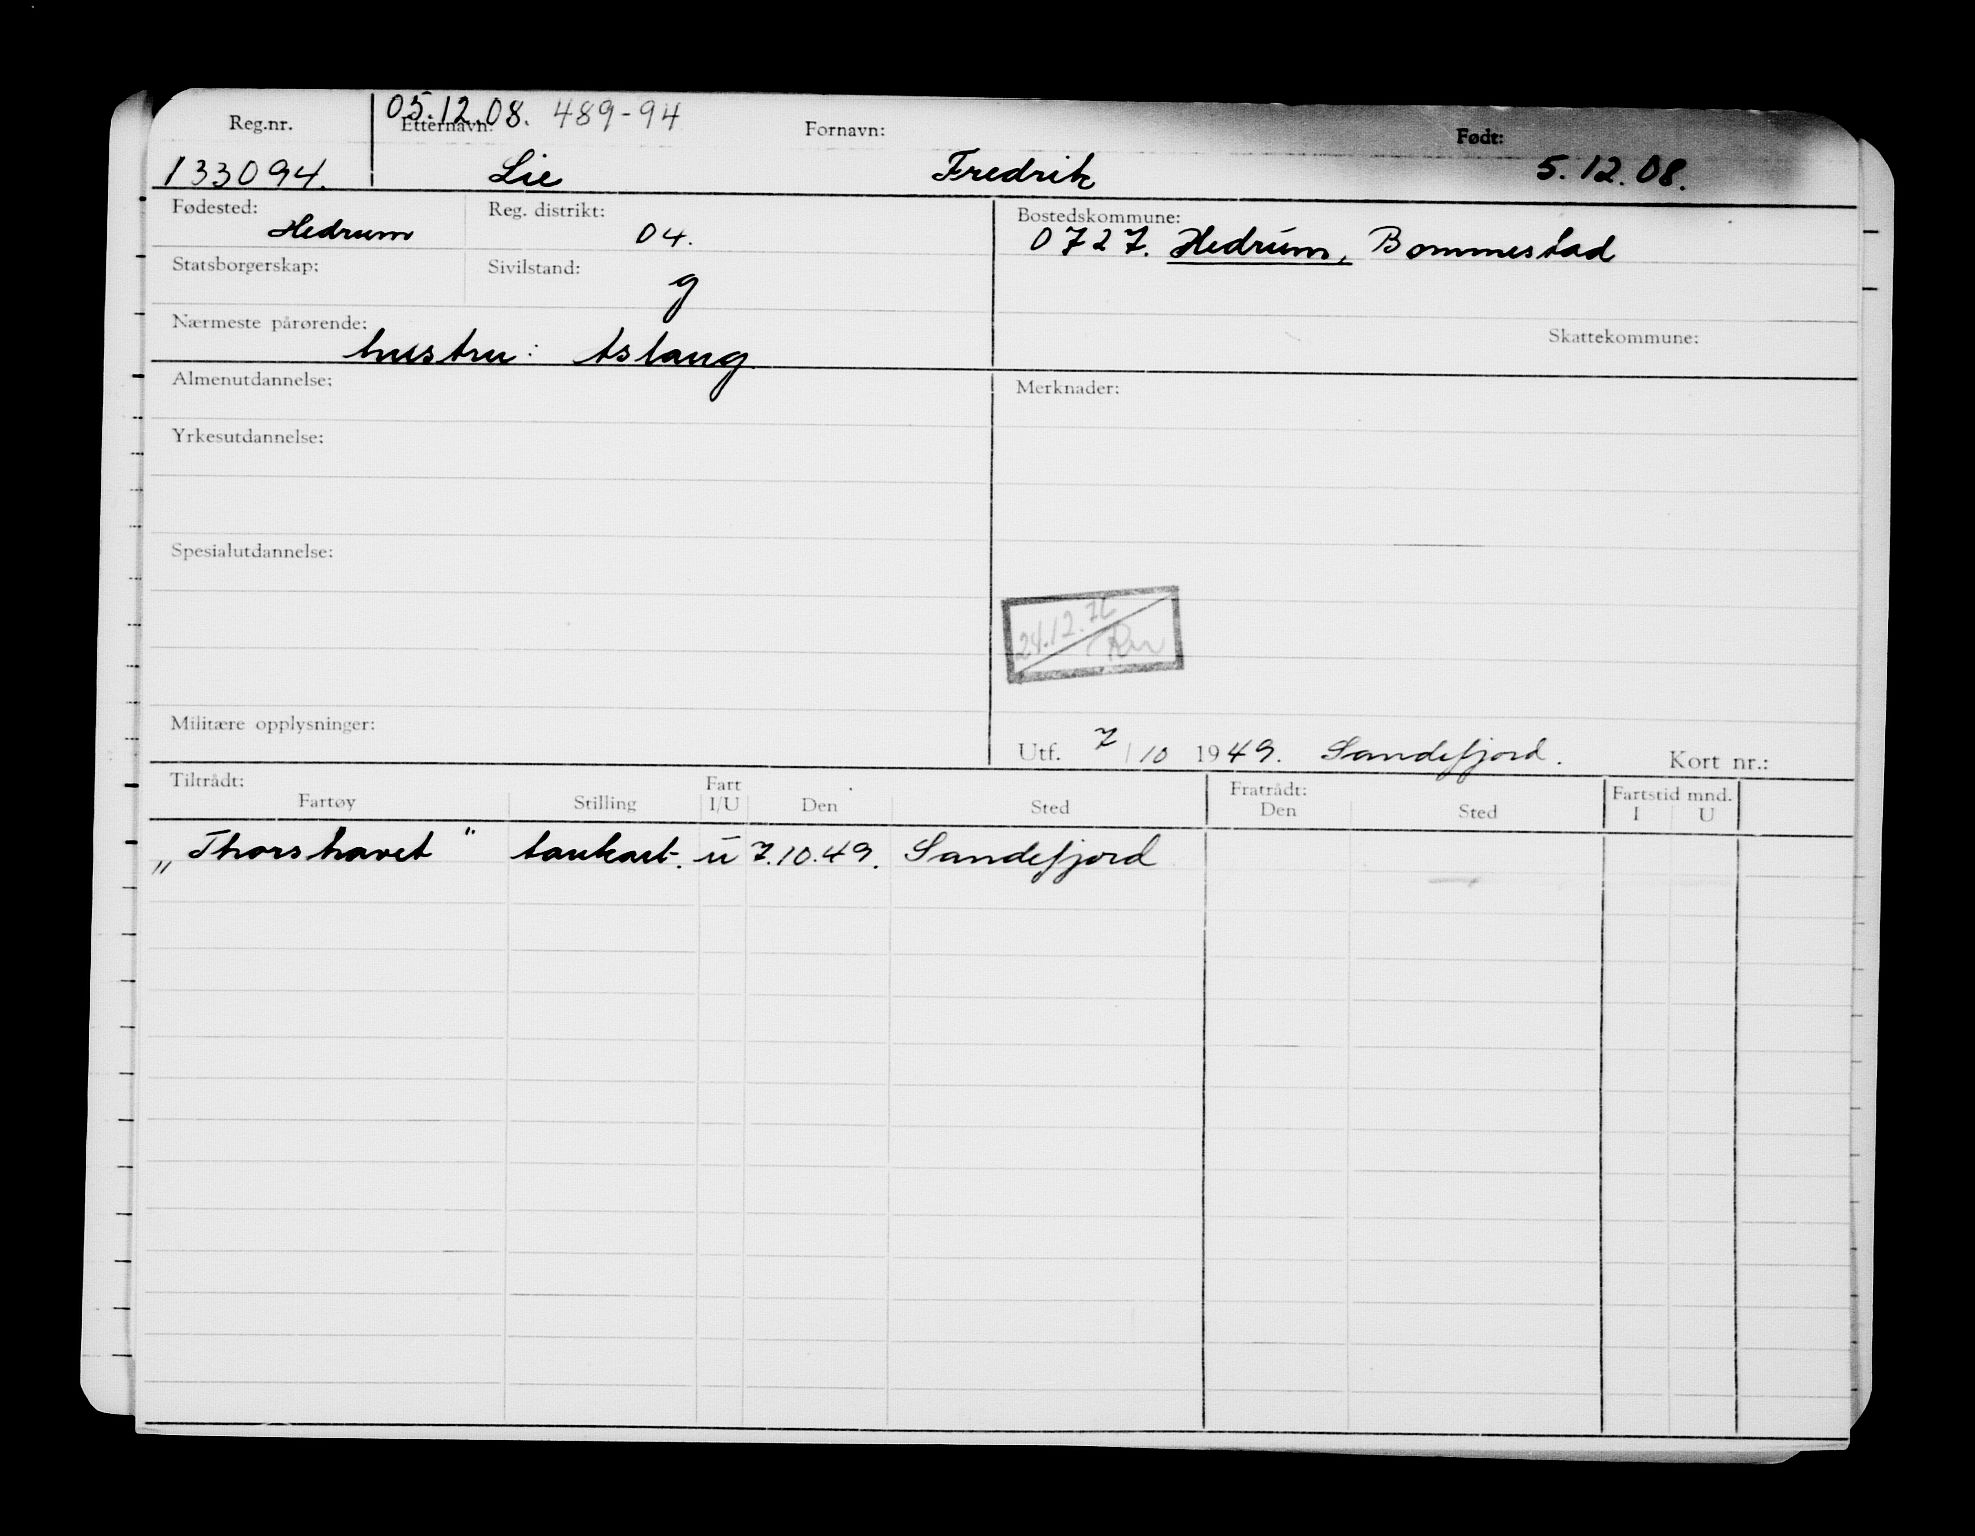 05.12.08. 489-94
Reg.nr. Etternavn: Fornavn: Født:
133094. Lie Fredrik 5.12.08.
Fødested: Hedrum Reg. distrikt: 04. Bostedskommune: 0727. Hedrum, Bommestad
Statsborgerskap: Sivilstand: g
Nærmeste pårørende: hustru: Aslaug Skattekommune:
Almenutdannelse: Merknader:
Yrkesutdannelse:
Spesialutdannelse:
24.12.76
Militære opplysninger:
Utf. 7/10 1949. Sandefjord. Kort nr.:
Tiltrådt: Fart Fratrådt: Fartstid mnd.
Fartøy Stilling I/U Den Sted Den Sted I U
„Thorshavet" tankast. u 7.10.49. Sandefjord